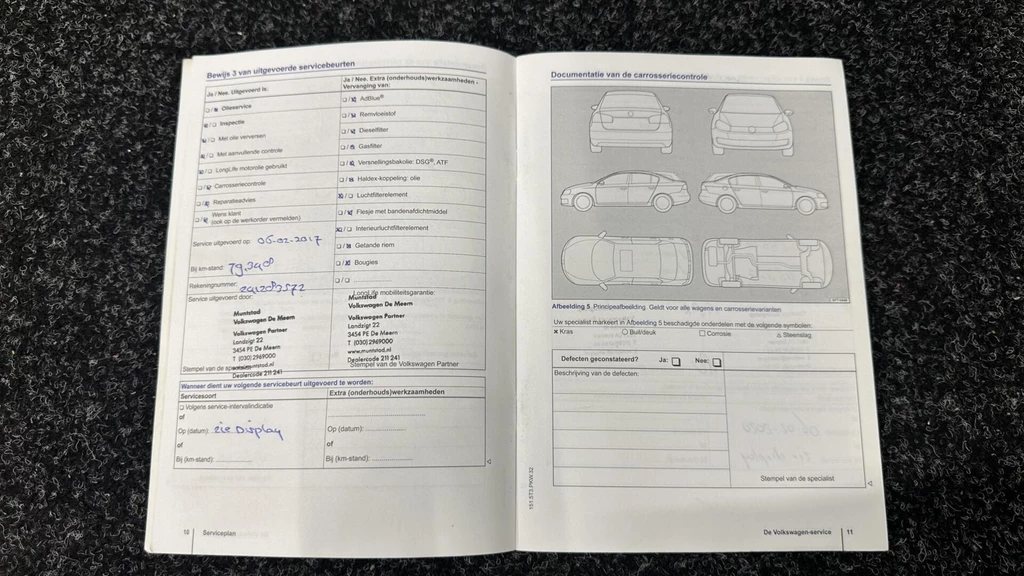 Bewijs 3 van uitgevoerde servicebeurten
Ja / Nee. Uitgevoerd is:
Ja / Nee. Extra (onderhouds)werkzaamheden -
Vervanging van:
Olieservice
Inspectie
Met olie verversen
Met aanvullende controle
LongLife motorolie gebruikt
Carrosseriecontrole
Reparatieadvies
Wens klant
(ook op de werkorder vermelden)
AdBlue®
Remvloeistof
Dieselfilter
Gasfilter
Versnellingsbakolie: DSG®, ATF
Haldex-koppeling: olie
Luchtfilterelement
Flesje met bandenafdichtmiddel
Interieurluchtfilterelement
Getande riem
Bougies
Service uitgevoerd op: 06-02-2017
Bij km-stand:
Rekeningnummer:
Service uitgevoerd door:
LongLife mobiliteitsgarantie:
Muntstad
Volkswagen De Meern
Volkswagen Partner
Landzigt 22
3454 PE De Meern
T (030)2969000
Dealercode 211 241
Muntstad
Volkswagen De Meern
Volkswagen Partner
Landzigt 22
3454 PE De Meern
T (030)2969000
www.muntstad.nl
Dealercode 211 241
Stempel van de Volkswagen Partner
Wanneer dient uw volgende servicebeurt uitgevoerd te worden:
Servicesoort
Extra (onderhouds)werkzaamheden
Volgens service-intervalindicatie
of
Op (datum): zie Display
of
Bij (km-stand):
Op (datum):
of
Bij (km-stand):
10 Serviceplan
Documentatie van de carrosseriecontrole
Afbeelding 5 Principeafbeelding. Geldt voor alle wagens en carrosserievarianten
Uw specialist markeert in Afbeelding 5 beschadigde onderdelen met de volgende symbolen:
Kras Buil/deuk Corrosie Steenslag
Defecten geconstateerd? Ja: Nee:
Beschrijving van de defecten:
Stempel van de specialist
151.5T3.PKW.32
De Volkswagen-service 11